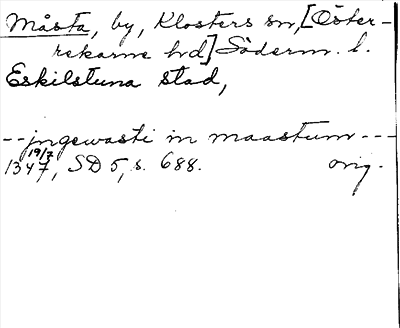 Måsta, by, Klosters sn, [Öster-
rekarne hd] Söderm. l.
Eskilstuna stad,
--jngewasti in maastum---
19/7
1347, SD 5, s. 688. orig.